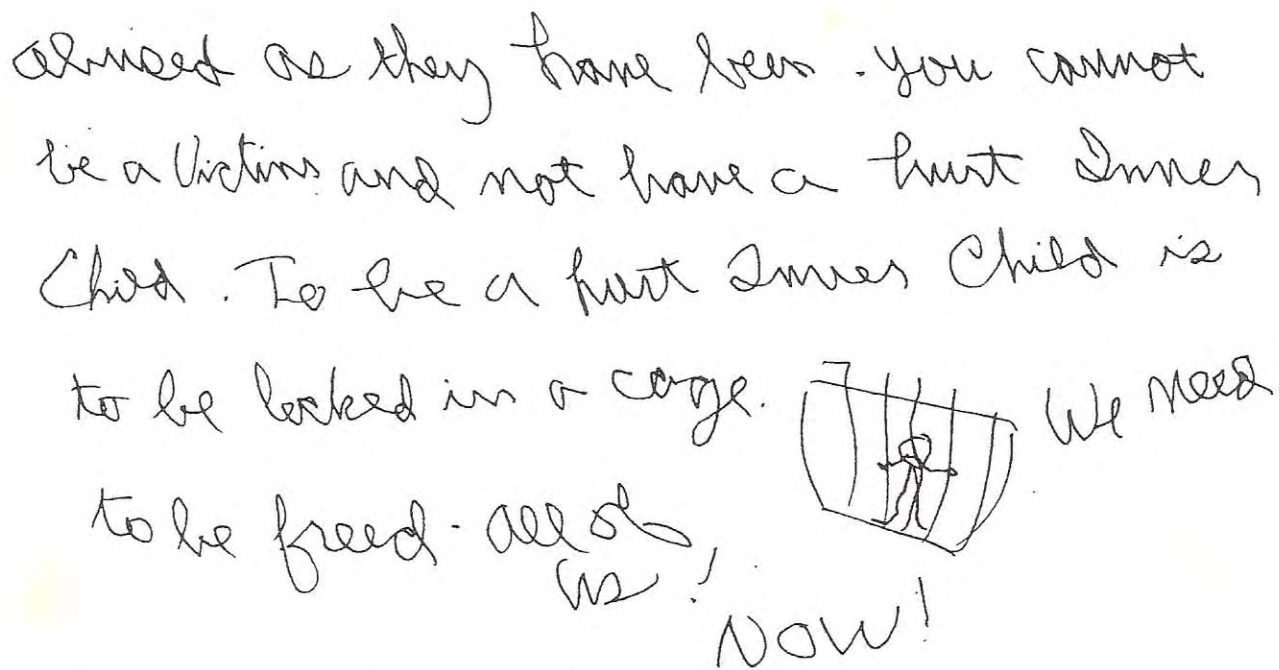 abused as they have been. you cannot
be a Victim and not have a hurt Inner
Child. To be a hurt Inner Child is
to be locked in a cage. We need
to be freed - all of
us!
NOW!